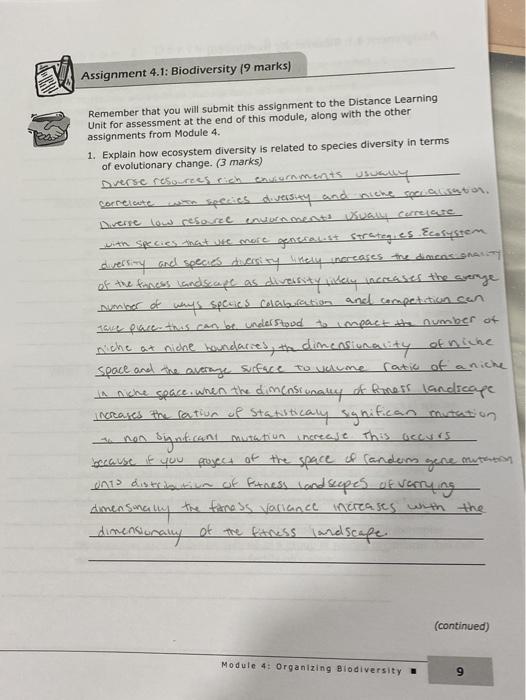 Assignment 4.1: Biodiversity (9 marks)
Remember that you will submit this assignment to the Distance Learning
Unit for assessment at the end of this module, along with the other
assignments from Module 4.
1. Explain how ecosystem diversity is related to species diversity in terms
of evolutionary change. (3 marks)
Diverse resources rich enviornments usually
correlate with species diversity and niche specialisation.
Diverse low resource enviornments usually correlate
with species that use more generalist strategies. Ecosystem
diversity and species diversity likely increases the dimensionality
of the fitness landscape as diversity likely increases the average
number of ways species colaboration and competition can
take place. this can be understood to impact the number of
niche at niche boundaries, the dimensionality of niche
space and the average surface to volume ratio of a niche
in niche space. when the dimensionaly of fitness landscape
increases the ration of statisticaly significan mutation
to non significant mutation increase This occurs
because if you project of the space of random gene mutation
onto distribution of fitness landscapes of varrying
dimensionally the fitness variance increases with the
dimensionaly of the fitness landscape.
(continued)
Module 4: Organizing Biodiversity
9